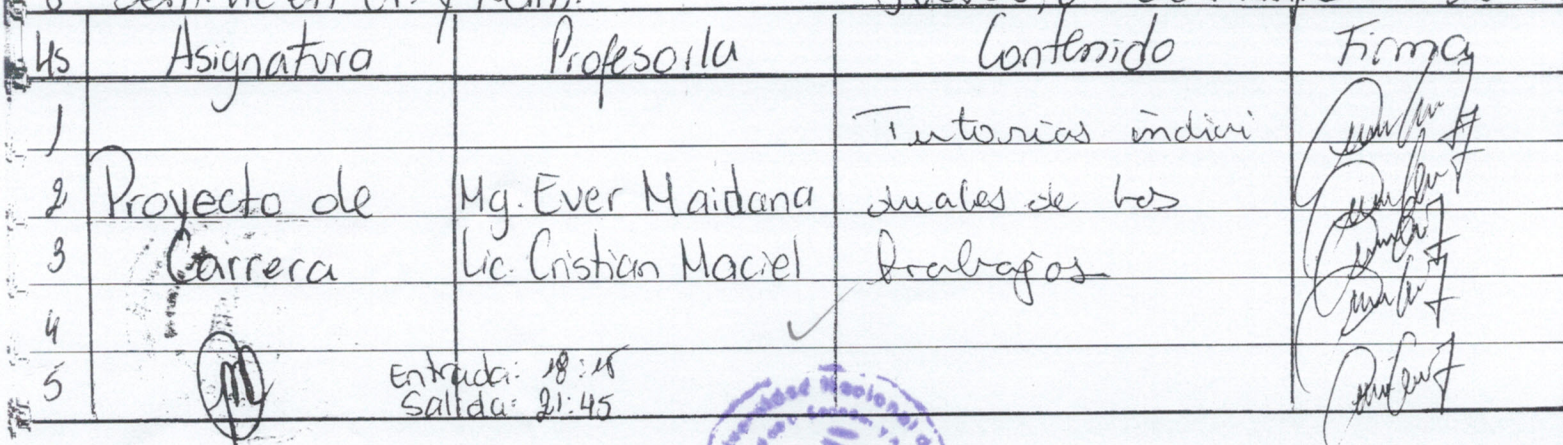 Hs Asignatura Profesor/la Contenido Firma
1 Tutorias indivi
2 Proyecto de Mg. Ever Maidana duales de los
3 Carrera Lic. Cristian Maciel trabajos
4
5 Entrada: 18:15
Salida: 21:45
Nacional